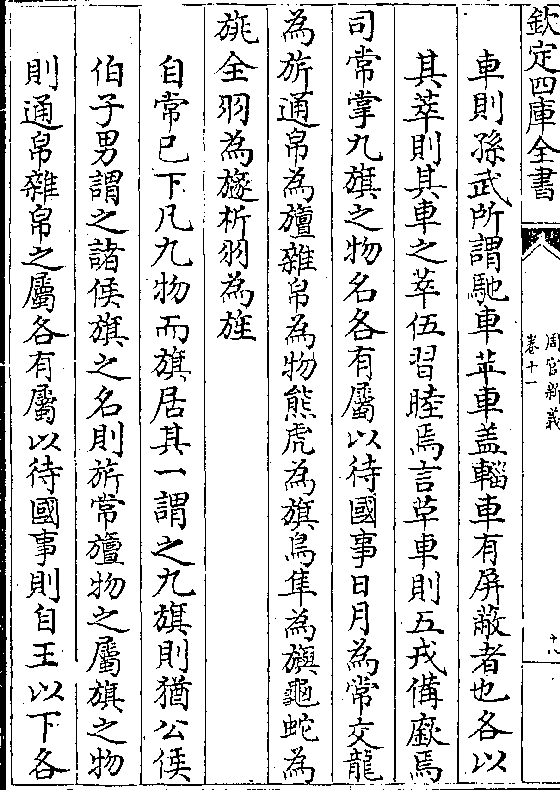 欽定四庫全書
周官新義
卷十一
十八
車則孫武所謂馳車苹車盖輜車有屏蔽者也各以
其萃則其車之萃伍習睦焉言草車則五戎備廞焉
司常掌九旗之物名各有屬以待國事日月為常交龍
為旂通帛為旜雜帛為物熊虎為旗鳥隼為旟龜蛇為
旐全羽為旞析羽為旌
自常已下凡九物而旗居其一謂之九旗則猶公侯
伯子男謂之諸侯旗之名則旂常旜物之屬旗之物
則通帛雜帛之屬各有屬以待國事則自王以下各